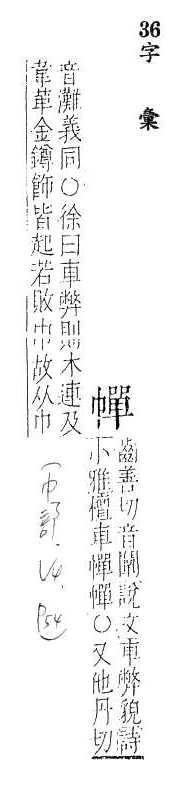 36字 彙
幝
齒善切音闡說文車弊貌詩
小雅檀車幝幝〇又他丹切
音灘義同〇徐曰車弊則木連及
韋革金鐏飾皆起若敗巾故从巾
(巾部, V4, P54)